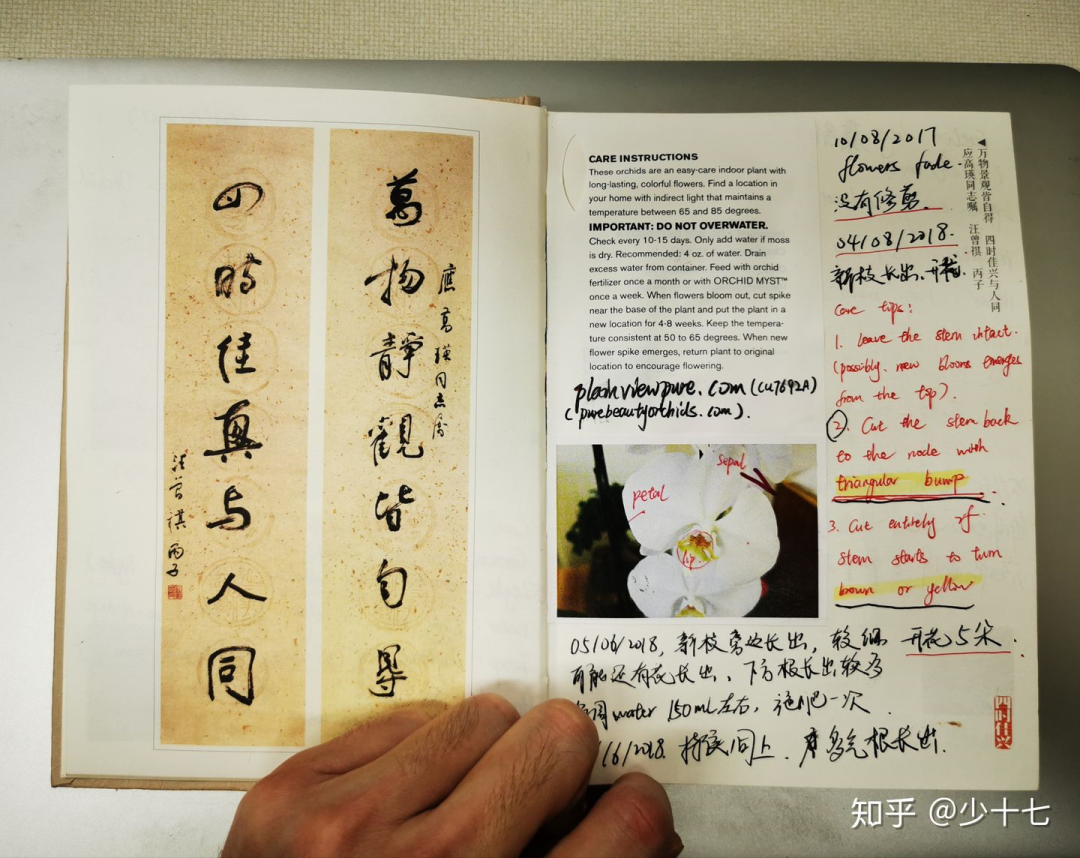 萬物靜觀皆自得
應高瑛同志屬
四時佳興与人同
汪曾祺 丙子
CARE INSTRUCTIONS
These orchids are an easy-care indoor plant with
long-lasting, colorful flowers. Find a location in
your home with indirect light that maintains a
temperature between 65 and 85 degrees.
IMPORTANT: DO NOT OVERWATER.
Check every 10-15 days. Only add water if moss
is dry. Recommended: 4 oz. of water. Drain
excess water from container. Feed with orchid
fertilizer once a month or with ORCHID MYST™
once a week. When flowers bloom out, cut spike
near the base of the plant and put the plant in a
new location for 4-8 weeks. Keep the tempera-
ture consistent at 50 to 65 degrees. When new
flower spike emerges, return plant to original
location to encourage flowering.
(purebeautyorchids.com).
petal
sepal
lip
10/08/2017
flowers fade.
没有修剪.
04/08/2018.
新枝长出、开花.
◀万物景观皆自得 四时佳兴与人同
应高瑛同志嘱 汪曾祺 丙子
Care tips:
1. Leave the stem intact.
(possibly. new blooms emerges
from the top).
2. Cut the stem back
to the node with
triangular bump.
3. Cut entirely if
stem starts to turn
brown or yellow
05/06/2018, 新枝旁边长出, 较细 开花5朵.
可能还有花长出、下方根长出较多
water 150ml左右, 施肥一次.
/6/2018. 同上. 多气根长出.
四时佳兴
知乎 @少十七